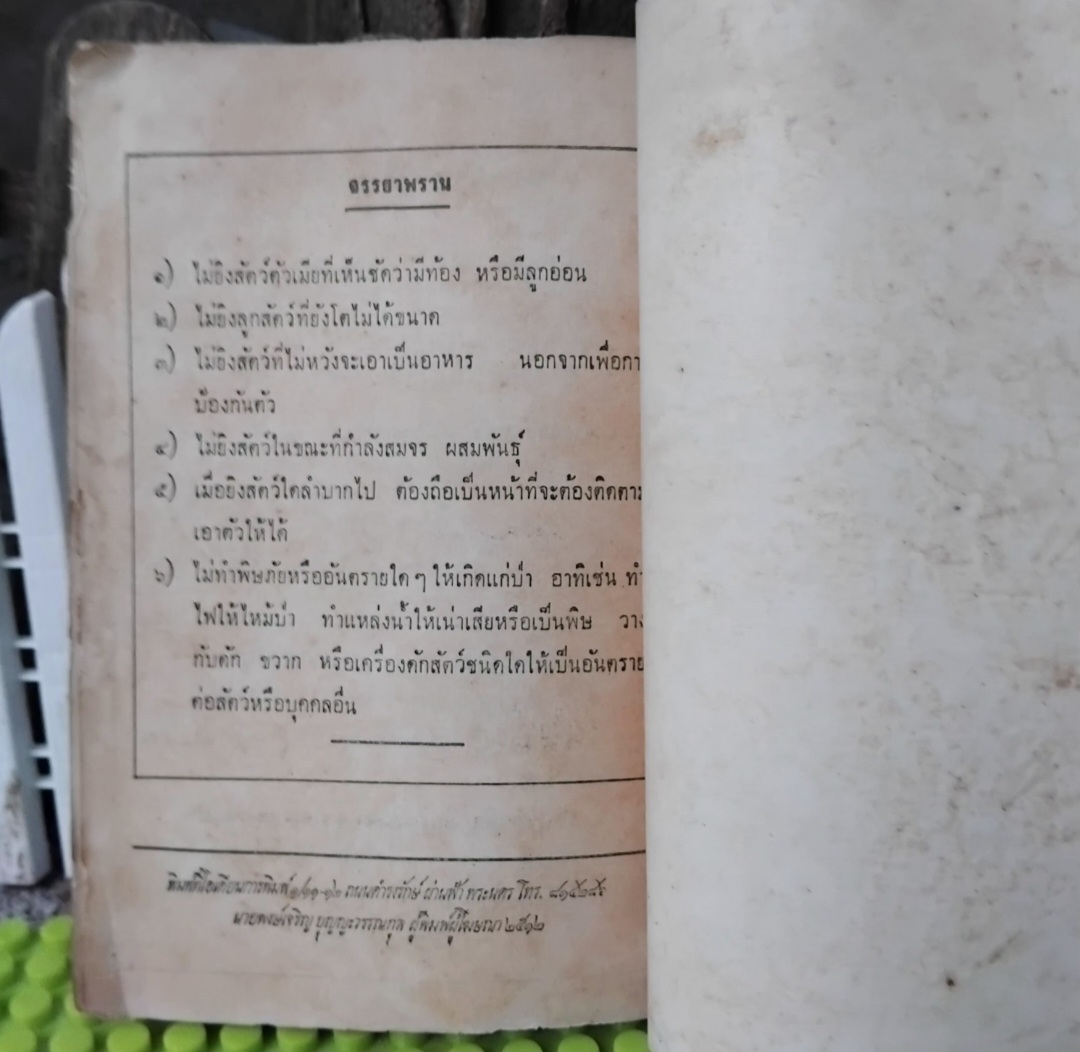 จรรยาพราน
๑) ไม่ยิงสัตว์ตัวเมียที่เห็นชัดว่ามีท้อง หรือมีลูกอ่อน
๒) ไม่ยิงลูกสัตว์ที่ยังโตไม่ได้ขนาด
๓) ไม่ยิงสัตว์ที่ไม่หวังจะเอาเป็นอาหาร นอกจากเพื่อกา
ป้องกันตัว
๔) ไม่ยิงสัตว์ในขณะที่กำลังสมจร ผสมพันธุ์
๕) เมื่อยิงสัตว์ใดลำบากไป ต้องถือเป็นหน้าที่จะต้องติดตาม
เอาตัวให้ได้
๖) ไม่ทำพิษภัยหรืออันตรายใด ๆ ให้เกิดแก่ป่า อาทิเช่น ทำ
ไฟให้ไหม้ป่า ทำแหล่งน้ำให้เน่าเสียหรือเป็นพิษ วาง
กับดัก ขวาก หรือเครื่องดักสัตว์ชนิดใดให้เป็นอันตราย
ต่อสัตว์หรือบุคคลอื่น
ถนนดำรงรักษ์ ผ่านฟ้า พระนคร โทร.
บุญญะวรรณกุล ผู้พิมพ์ผู้โฆษณา ๒๕๑๒